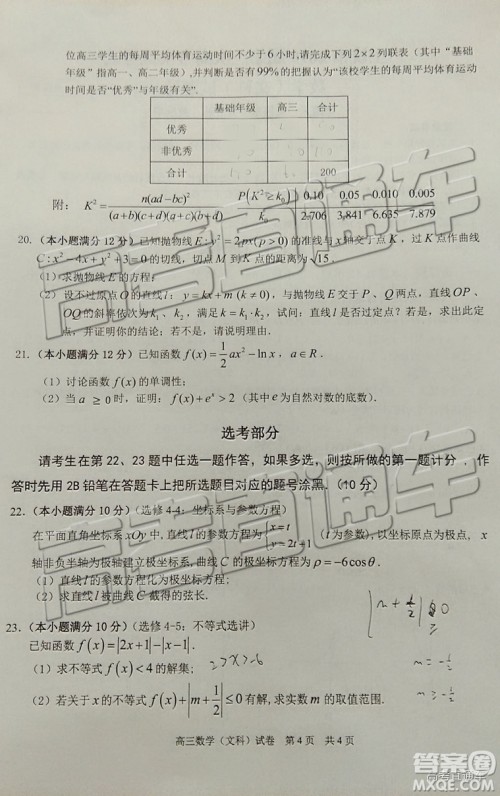 位高三学生的每周平均体育运动时间不少于6小时,请完成下列2×2列联表(其中“基础
年级”指高一、高二年级),并判断是否有99%的把握认为“该校学生的每周平均体育运动
时间是否“优秀”与年级有关”.
基础年级 高三 合计
优秀
非优秀
合计 200
附: K²=n(ad−bc)²/((a+b)(c+d)(a+c)(b+d))
P(K²≥k₀) 0.10 0.05 0.010 0.005
k₀ 2.706 3.841 6.635 7.879
20. (本小题满分12分)已知抛物线E:y²=2px(p>0)的准线与x轴交于点K,过点K作曲线
C:x²−4x+y²+3=0的切线,切点M到点K的距离为√15.
(1)求抛物线E的方程;
(2)设不过原点O的直线l:y=kx+m(k>0),与抛物线交于P、Q两点,直线OP、
OQ的斜率依次为k₁、k₂,满足k=k₁·k₂,试问:直线l是否过定点?若过定点,求出此定
点,并证明你的结论;若不是,请说明理由.
21. (本小题满分12分)已知函数f(x)=1/2 ax²−ln x, a∈R.
(1)讨论函数f(x)的单调性;
(2)当a≥0时,证明:f(x)+eˣ>2(其中e为自然对数的底数).
选考部分
请考生在第22、23题中任选一题作答,如果多选,则按所做的第一题计分,作
答时先用2B铅笔在答题卡上把所选题目对应的题号涂黑.(10分)
22. (本小题满分10分)(选修4-4:坐标系与参数方程)
在平面直角坐标系xOy中.直线l的参数方程为{x=t y=2t+1 (t为参数),以坐标原点为极点,x
轴非负半轴为极轴建立极坐标系,曲线C的极坐标方程为ρ=−6cosθ.
(1)直线l的参数方程化为极坐标方程;
(2)求直线l被曲线C截得的弦长.
23. (本小题满分10分)(选修4-5:不等式选讲)
已知函数f(x)=|2x+1|−|x−1|.
(1)求不等式f(x)<4的解集;
(2)若关于x的不等式f(x)+|m+1/2|≤0有解,求实数m的取值范围.
高三数学(文科)试卷 第4页 共4页
高考直通车
高考直通车
高考直通车
答案圈
MXQE.COM